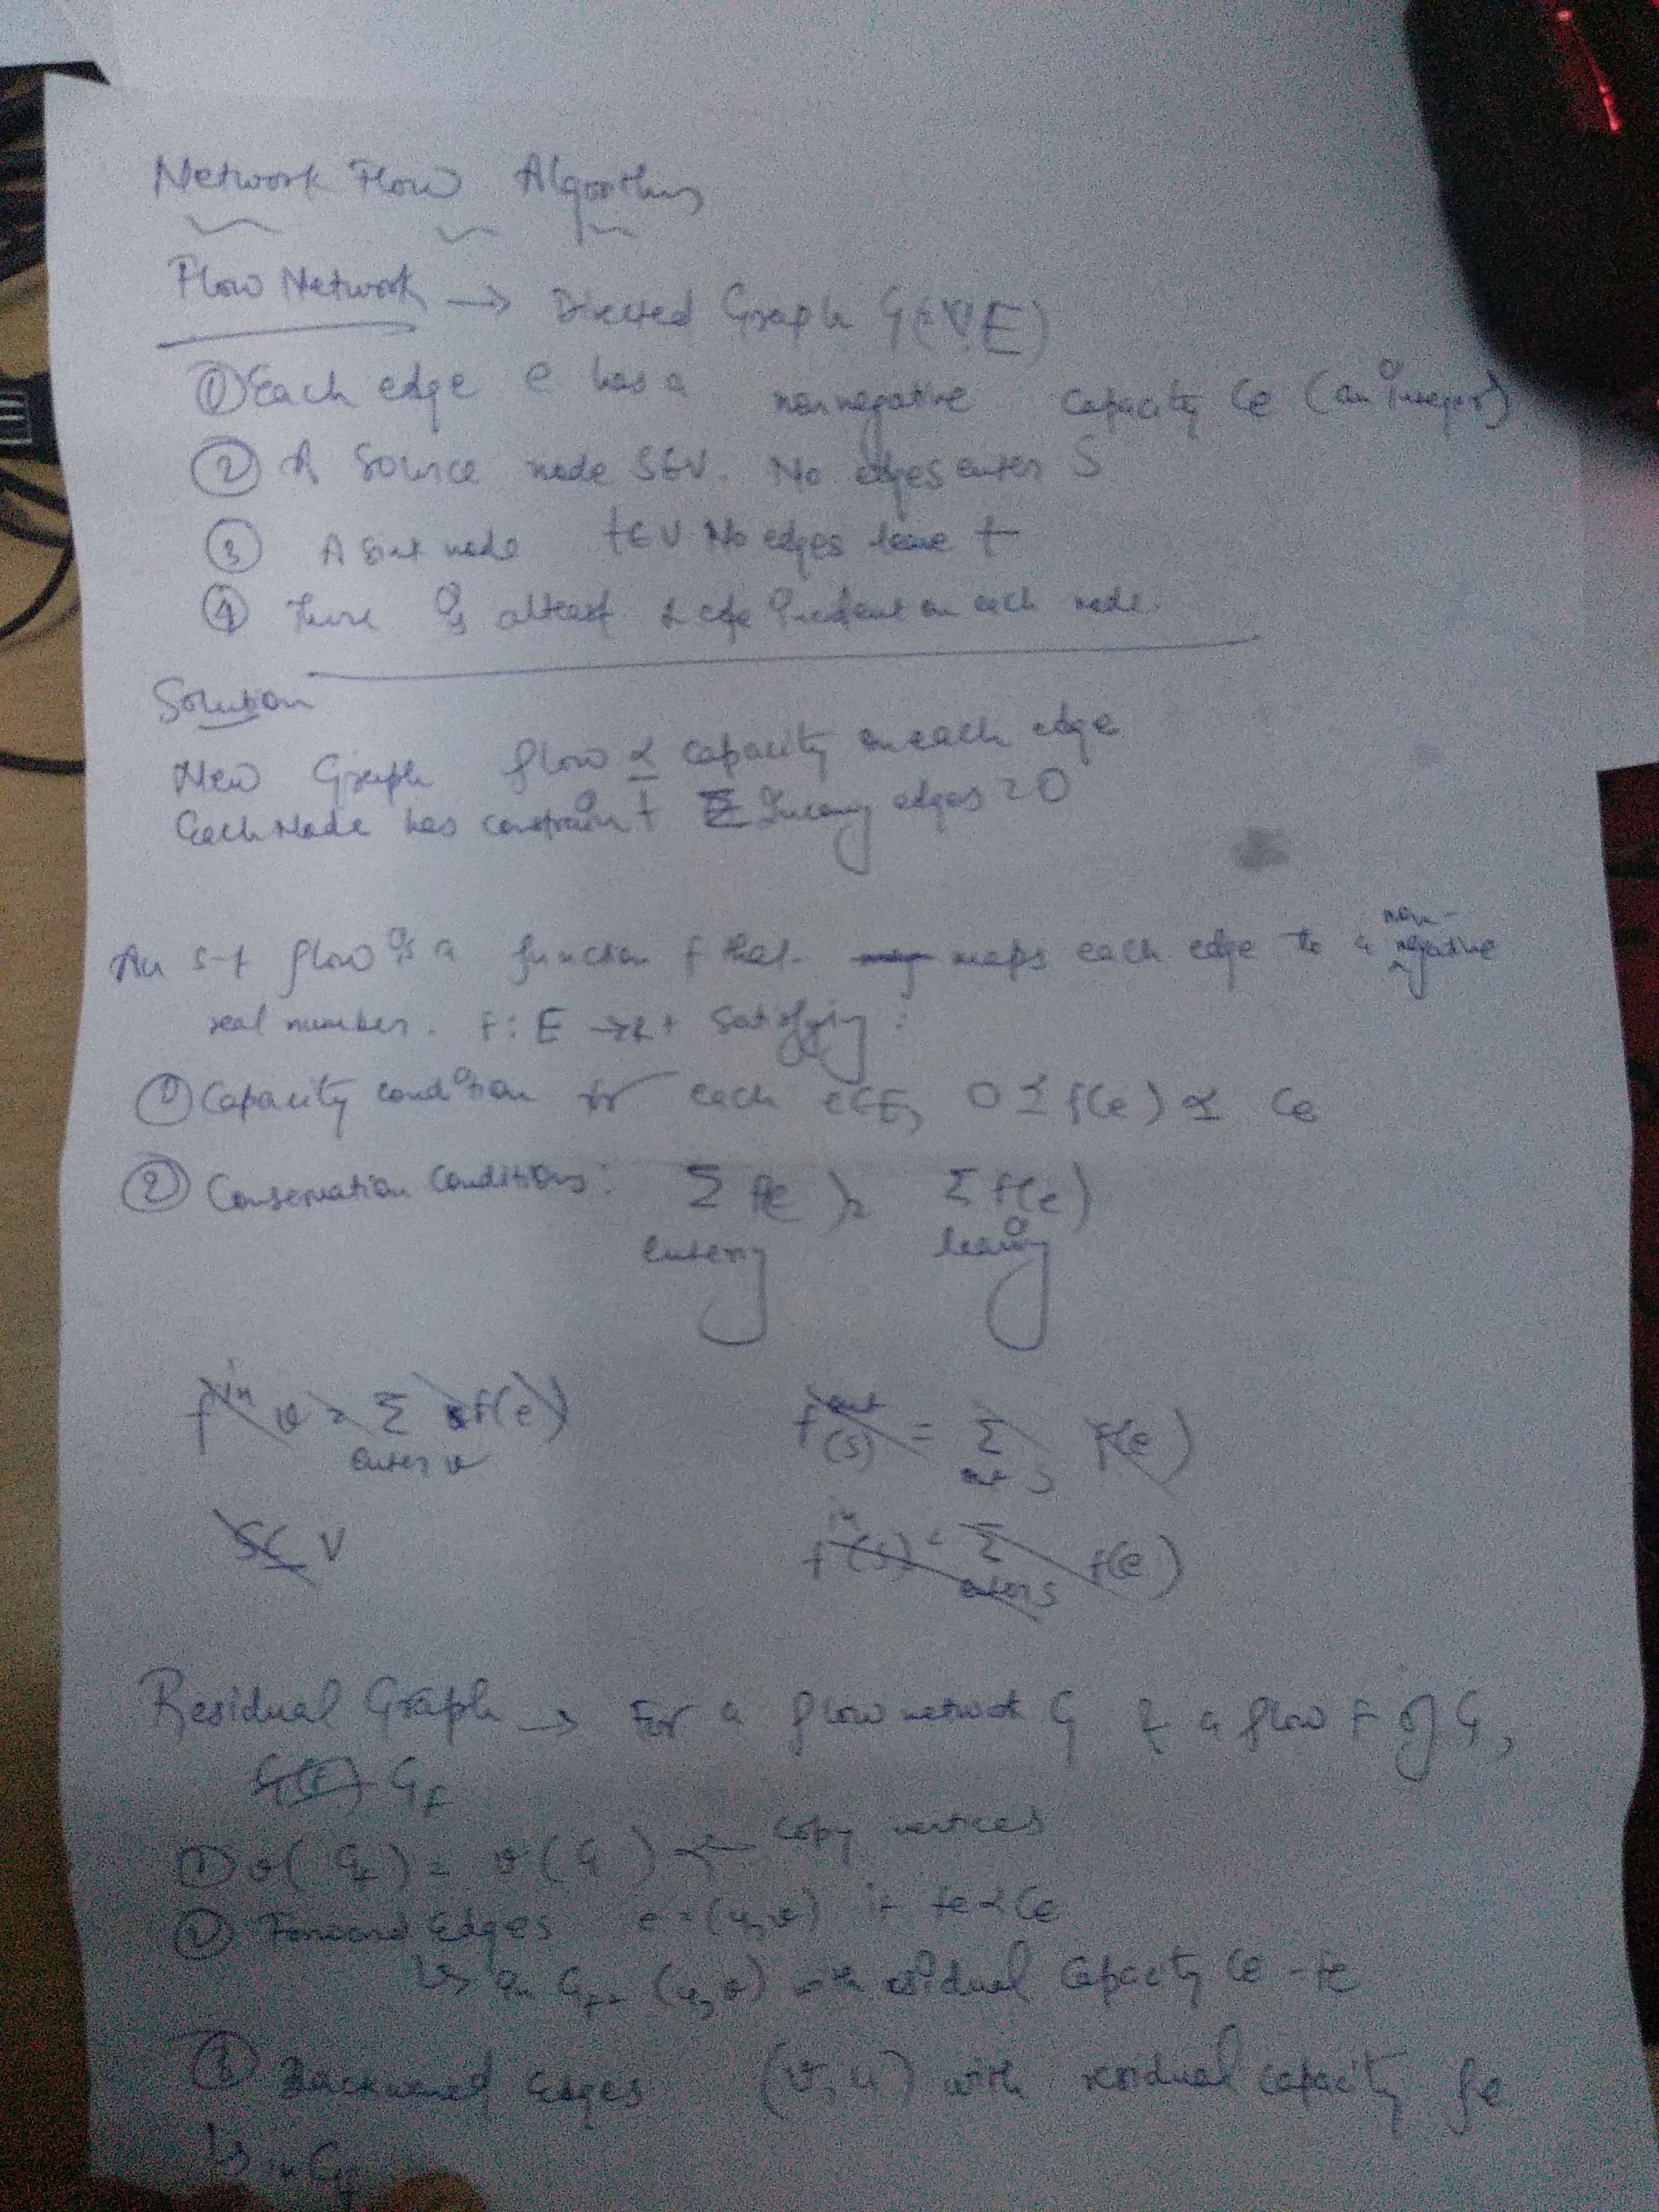 Network Flow Algorithms
Flow Network → Directed Graph G(V,E)
① Each edge e has a nonnegative capacity Ce (an integer)
② A Source node S∈V. No edges enter S
③ A sink node t∈V No edges leave t
④ There is atleast 1 edge incident on each node.
Solution
New Graph flow ≤ capacity on each edge
Each Node has constraint Σ Incoming edges = 0
An s-t flow is a function f that maps each edge to a non-negative
real number. f: E → R+ Satisfying:
① Capacity condition for each e∈E, 0 ≤ f(e) ≤ Ce
② Conservation Conditions: Σ f(e) = Σ f(e)
entering leaving
f^in v = Σ f(e) f^out(s) = Σ f(e)
enters v out S
S⊆ V f^in(s) = Σ f(e)
enters S
Residual Graph → For a flow network G & a flow F of G,
Gf
① v(Gf) = v(G) ← copy vertices
② Forward Edges e = (u,v) if fe < Ce
↳ in Gf (u,v) with residual capacity Ce - fe
③ Backward Edges (v,u) with residual capacity fe
↳ in Gf